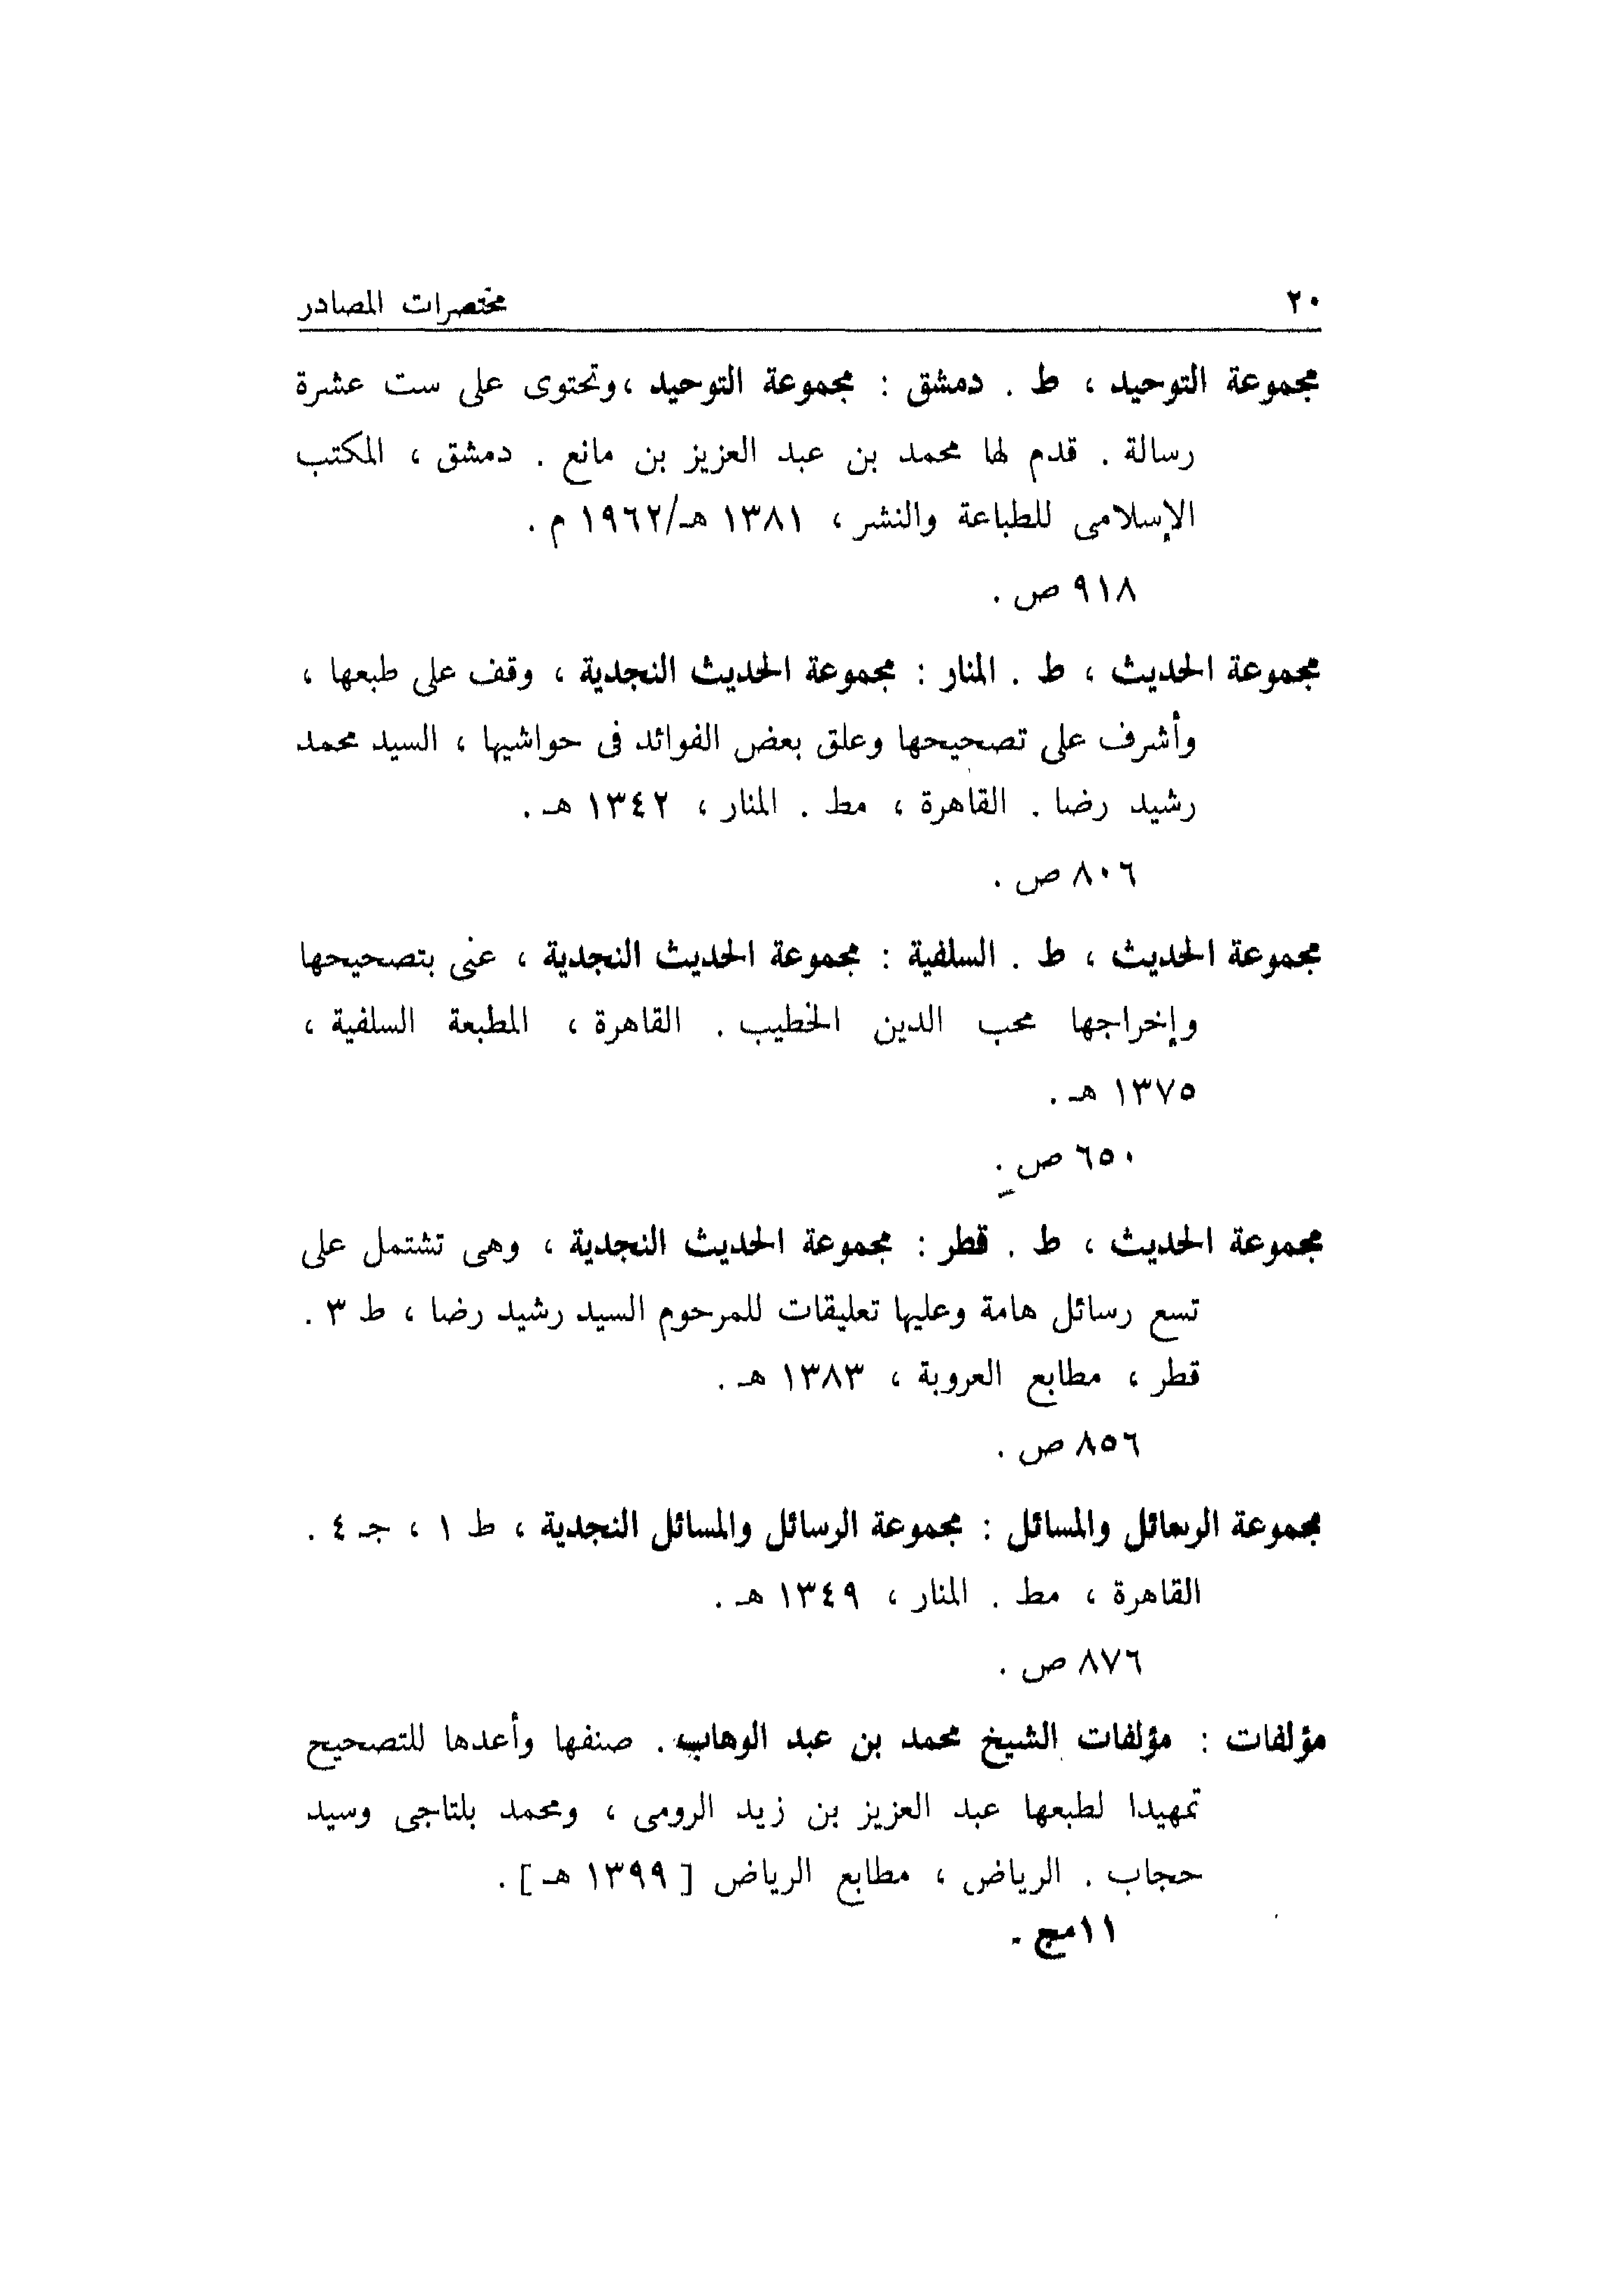 ٢٠ مختصرات المصادر
مجموعة التوحيد ، ط . دمشق : مجموعة التوحيد ،وتحتوى على ست عشرة
رسالة . قدم لها محمد بن عبد العزيز بن مانع . دمشق ، المكتب
الإسلامى للطباعة والنشر ، ١٣٨١ هـ/١٩٦٢ م .
٩١٨ ص .
مجموعة الحديث ، ط . المنار : مجموعة الحديث النجدية ، وقف على طبعها ،
وأشرف على تصحيحها وعلق بعض الفوائد فى حواشيها ، السيد محمد
رشيد رضا . القاهرة ، مط . المنار ، ١٣٤٢ هـ .
٨٠٦ ص .
مجموعة الحديث ، ط . السلفية : مجموعة الحديث النجدية ، عنى بتصحيحها
وإخراجها محب الدين الخطيب . القاهرة ، المطبعة السلفية ،
١٣٧٥ هـ .
٦٥٠ ص .
مجموعة الحديث ، ط . قطر : مجموعة الحديث النجدية ، وهى تشتمل على
تسع رسائل هامة وعليها تعليقات للمرحوم السيد رشيد رضا ، ط ٣ .
قطر ، مطابع العروبة ، ١٣٨٣ هـ .
٨٥٦ ص .
مجموعة الرسائل والمسائل : مجموعة الرسائل والمسائل النجدية ، ط ١ ، جـ ٤ .
القاهرة ، مط . المنار ، ١٣٤٩ هـ .
٨٧٦ ص .
مؤلفات : مؤلفات الشيخ محمد بن عبد الوهاب . صنفها وأعدها للتصحيح
تمهيدا لطبعها عبد العزيز بن زيد الرومى ، ومحمد بلتاجى وسيد
حجاب . الرياض ، مطابع الرياض [ ١٣٩٩ هـ ] .
١١مج .